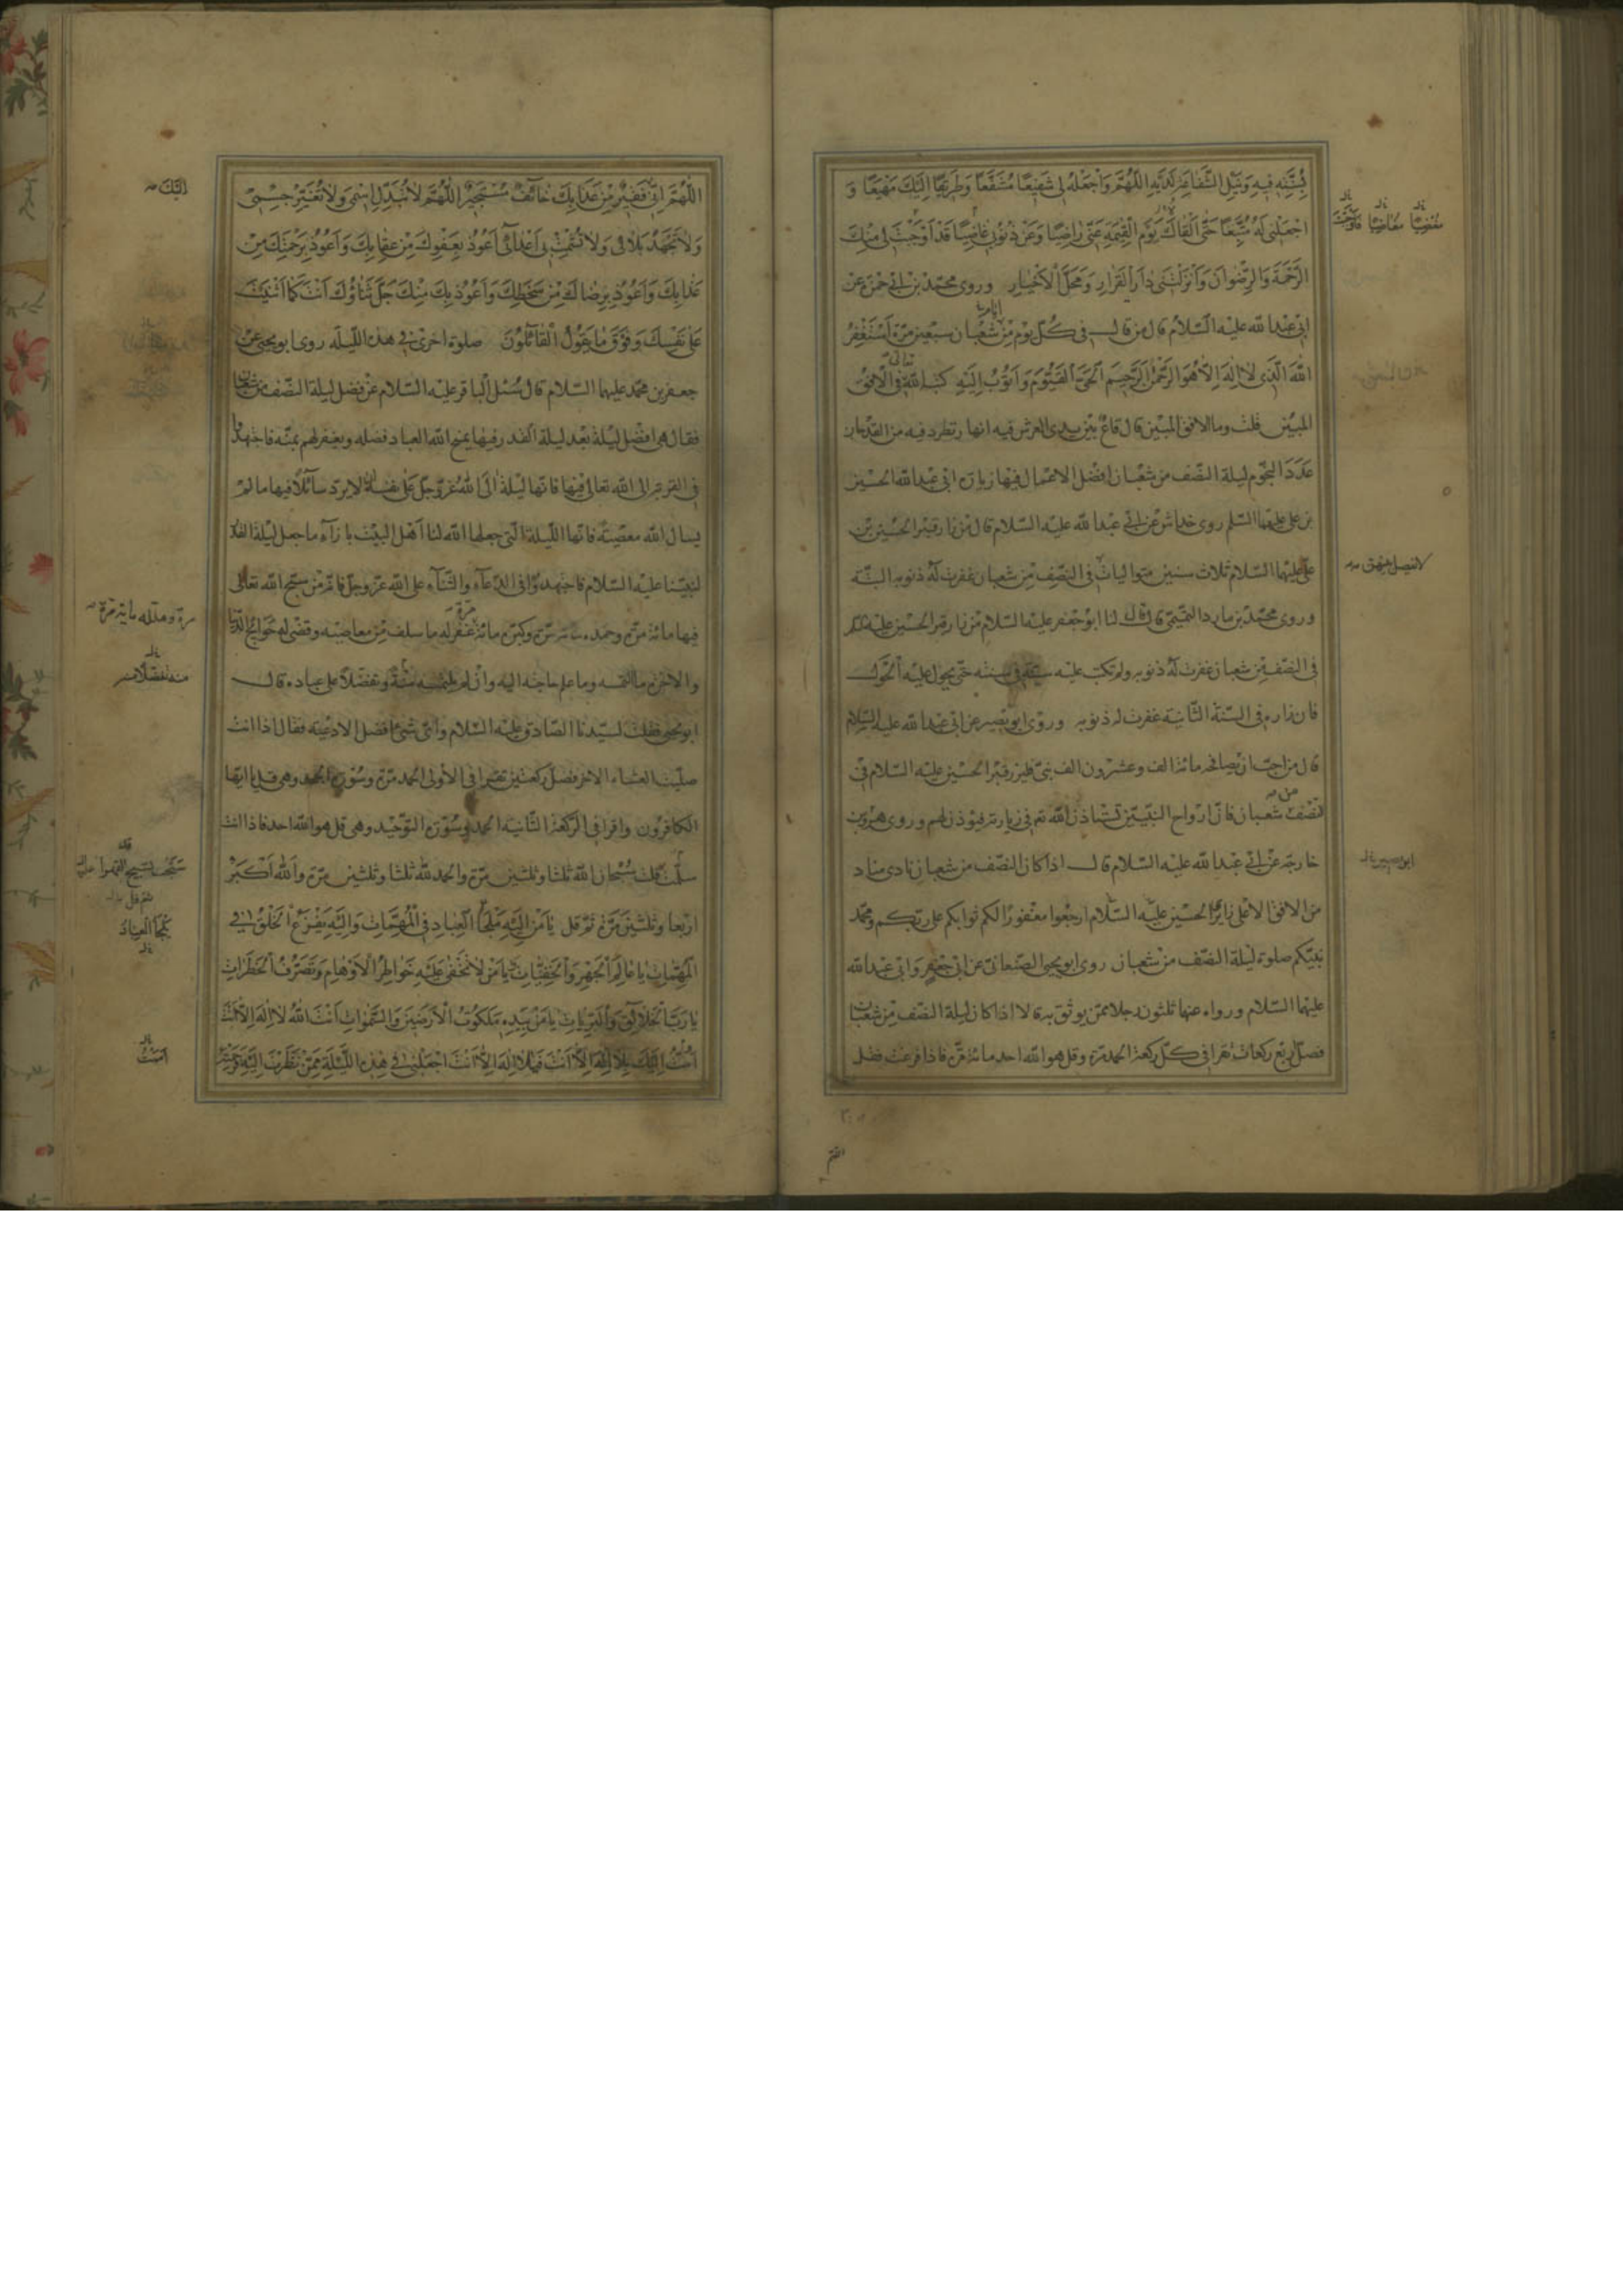 بِسُنَّتِهِ فيهِ وَنَيْلِ الشَّفاعَةِ لَدَيْهِ اللّٰهُمَّ وَاجْعَلْهُ لي شَفيعًا مُشَفَّعًا وَطَريقًا اِلَيْكَ مَهْيَعًا وَ
اجْعَلْني لَهُ مُتَّبِعًا حَتّٰى اَلْقاكَ يَوْمَ الْقِيٰمَةِ عَنّي راضِيًا وَعَنْ ذُنُوبي غاضِيًا قَدْ اَوْجَبْتَ لي مِنْكَ
الرَّحْمَةَ وَالرِّضْوانَ وَاَنْزَلْتَني دارَ الْقَرارِ وَمَحَلَّ الْاَخْيارِ وروى محمّد بن ابي حمزة عن
ابي عبد الله عليه السّلام قال من قال في كلّ يوم من شعبان سبعين مرّة اَسْتَغْفِرُ
اللهَ الَّذي لا اِلٰهَ اِلّا هُوَ الرَّحْمٰنُ الرَّحيمُ اَلْحَيُّ الْقَيُّومُ وَاَتُوبُ اِلَيْهِ كتبه الله في الافق
المبين قلت وما الافق المبين قال قاع بين يدي العرش فيه انهار تطرد فيه من القدحان
عدد النجوم ليلة النّصف من شعبان افضل الاعمال فيها زيارة ابي عبد الله الحسين
بن علي عليهما السّلم روى عن ابي عبد الله عليه السّلام قال من زار قبر الحسين بن
علي عليهما السّلام ثلاث سنين متواليات في النّصف من شعبان غفرت له ذنوبه البتّة
وروى محمّد بن مارد التّميمي قال قال لنا ابو جعفر عليه السلام من زار قبر الحسين عليه السّلم
في النّصف من شعبان غفرت له ذنوبه ولم تكتب عليه سيّئة في سنته حتّى يحول عليه الحول
فان زاره في السّنة الثّانية غفرت له ذنوبه وروى ابو بصير عن ابي عبد الله عليه السّلام
قال من احبّ ان يصافحه مائة الف وعشرون الف نبيّ فليزر قبر الحسين عليه السّلام في
نصف شعبان فانّ ارواح النّبيّين تستاذن الله في زيارته فيؤذن لهم وروى هرون
خارجة عن ابي عبد الله عليه السّلام قال اذا كان النّصف من شعبان نادى مناد
من الافق الاعلى زائري الحسين عليه السّلام ارجعوا مغفورًا لكم ثوابكم على ربّكم ومحمّد
نبيّكم صلوة ليلة النّصف من شعبان روى ابو يحيى الصّنعاني عن ابي جعفر وابي عبد الله
عليهما السّلام ورواه عنهما ثلثون رجلا ممّن يوثق به قالا اذا كان ليلة النّصف من شعبان
فصلّ اربع ركعات تقرا في كلّ ركعة الحمد مرّة وقل هو الله احد مائة مرّة فاذا فرغت فقل
اللّٰهُمَّ اِنّي فَقيرٌ مِنْ عَذابِكَ خائِفٌ مُسْتَجيرٌ اَللّٰهُمَّ لا تُبَدِّلْ اِسْمي وَلا تُغَيِّرْ جِسْمي
وَلا تَجْهَدْ بَلائي وَلا تُشْمِتْ بي اَعْدائي اَعُوذُ بِعَفْوِكَ مِنْ عِقابِكَ وَاَعُوذُ بِرَحْمَتِكَ مِنْ
عَذابِكَ وَاَعُوذُ بِرِضاكَ مِنْ سَخَطِكَ وَاَعُوذُ بِكَ مِنْكَ جَلَّ ثَناؤُكَ اَنْتَ كَما اَثْنَيْتَ
عَلى نَفْسِكَ وَفَوْقَ ما يَقُولُ الْقائِلُونَ صلوة اخرى في هذه اللّيلة روى ابو يحيى عن
جعفر بن محمّد عليهما السّلام قال سئل الباقر عليه السّلام عن فضل ليلة النّصف من شعبان
فقال هي افضل ليلة بعد ليلة القدر فيها يمنح الله العباد فضله ويغفر لهم بمنّه فاجتهدوا
في القربة الى الله تعالى فيها فانّها ليلة الى الله عزّ وجلّ على نفسه لا يردّ سائلًا فيها ما لم
يسال الله معصية فانّها اللّيلة الّتي جعلها الله لنا اهل البيت بازاء ما جعل ليلة القدر
لنبيّنا عليه السّلام فاجتهدوا في الدّعاء والثّناء على الله عزّ وجلّ فانّه من سبّح الله تعالى
فيها مائة مرّة وحمده مائة مرّة وكبّره مائة غفر له ما سلف من معاصيه وقضى له حوائج الدّنيا
والآخرة ما التمسه وما علم حاجته اليه وان لم يلتمسه منّة وتفضّلًا على عباده قال
ابو يحيى فقلت لسيّدنا الصّادق عليه السّلام وايّ شيء افضل الادعية فقال اذا انت
صلّيت العشاء الآخر فصلّ ركعتين تقرا في الاولى الحمد مرّة وسورة الجحد وهي قل يا ايّها
الكافرون واقرا في الركعة الثّانية الحمد وسورة التّوحيد وهي قل هو الله احد فاذا انت
سلّمت قلت سُبْحانَ الله ثلثا وثلثين مرّة والحمد لله ثلثا وثلثين مرّة وَاللهُ اَكْبَرُ
اربعا وثلثين مرّة ثمّ قل يا مَنْ اِلَيْهِ مَلْجَأُ الْعِبادِ فِي الْمُهِمّاتِ وَاِلَيْهِ يَفْزَعُ الْخَلْقُ في
الْمُلِمّاتِ يا عالِمَ الْجَهْرِ وَالْخَفِيّاتِ يا مَنْ لا تَخْفى عَلَيْهِ خَواطِرُ الْاَوْهامِ وَتَصَرُّفُ الْخَطَراتِ
يا رَبَّ الْخَلائِقِ وَالْبَرِيّاتِ يا مَنْ بِيَدِهِ مَلَكُوتُ الْاَرَضينَ وَالسَّمٰواتِ اَنْتَ اللهُ لا اِلٰهَ اِلّا اَنْتَ
اَمُتُّ اِلَيْكَ بِلا اِلٰهَ اِلّا اَنْتَ فَيا لا اِلٰهَ اِلّا اَنْتَ اجْعَلْني في هٰذِهِ اللَّيْلَةِ مِمَّنْ نَظَرْتَ اِلَيْهِ
اِلَيْكَ